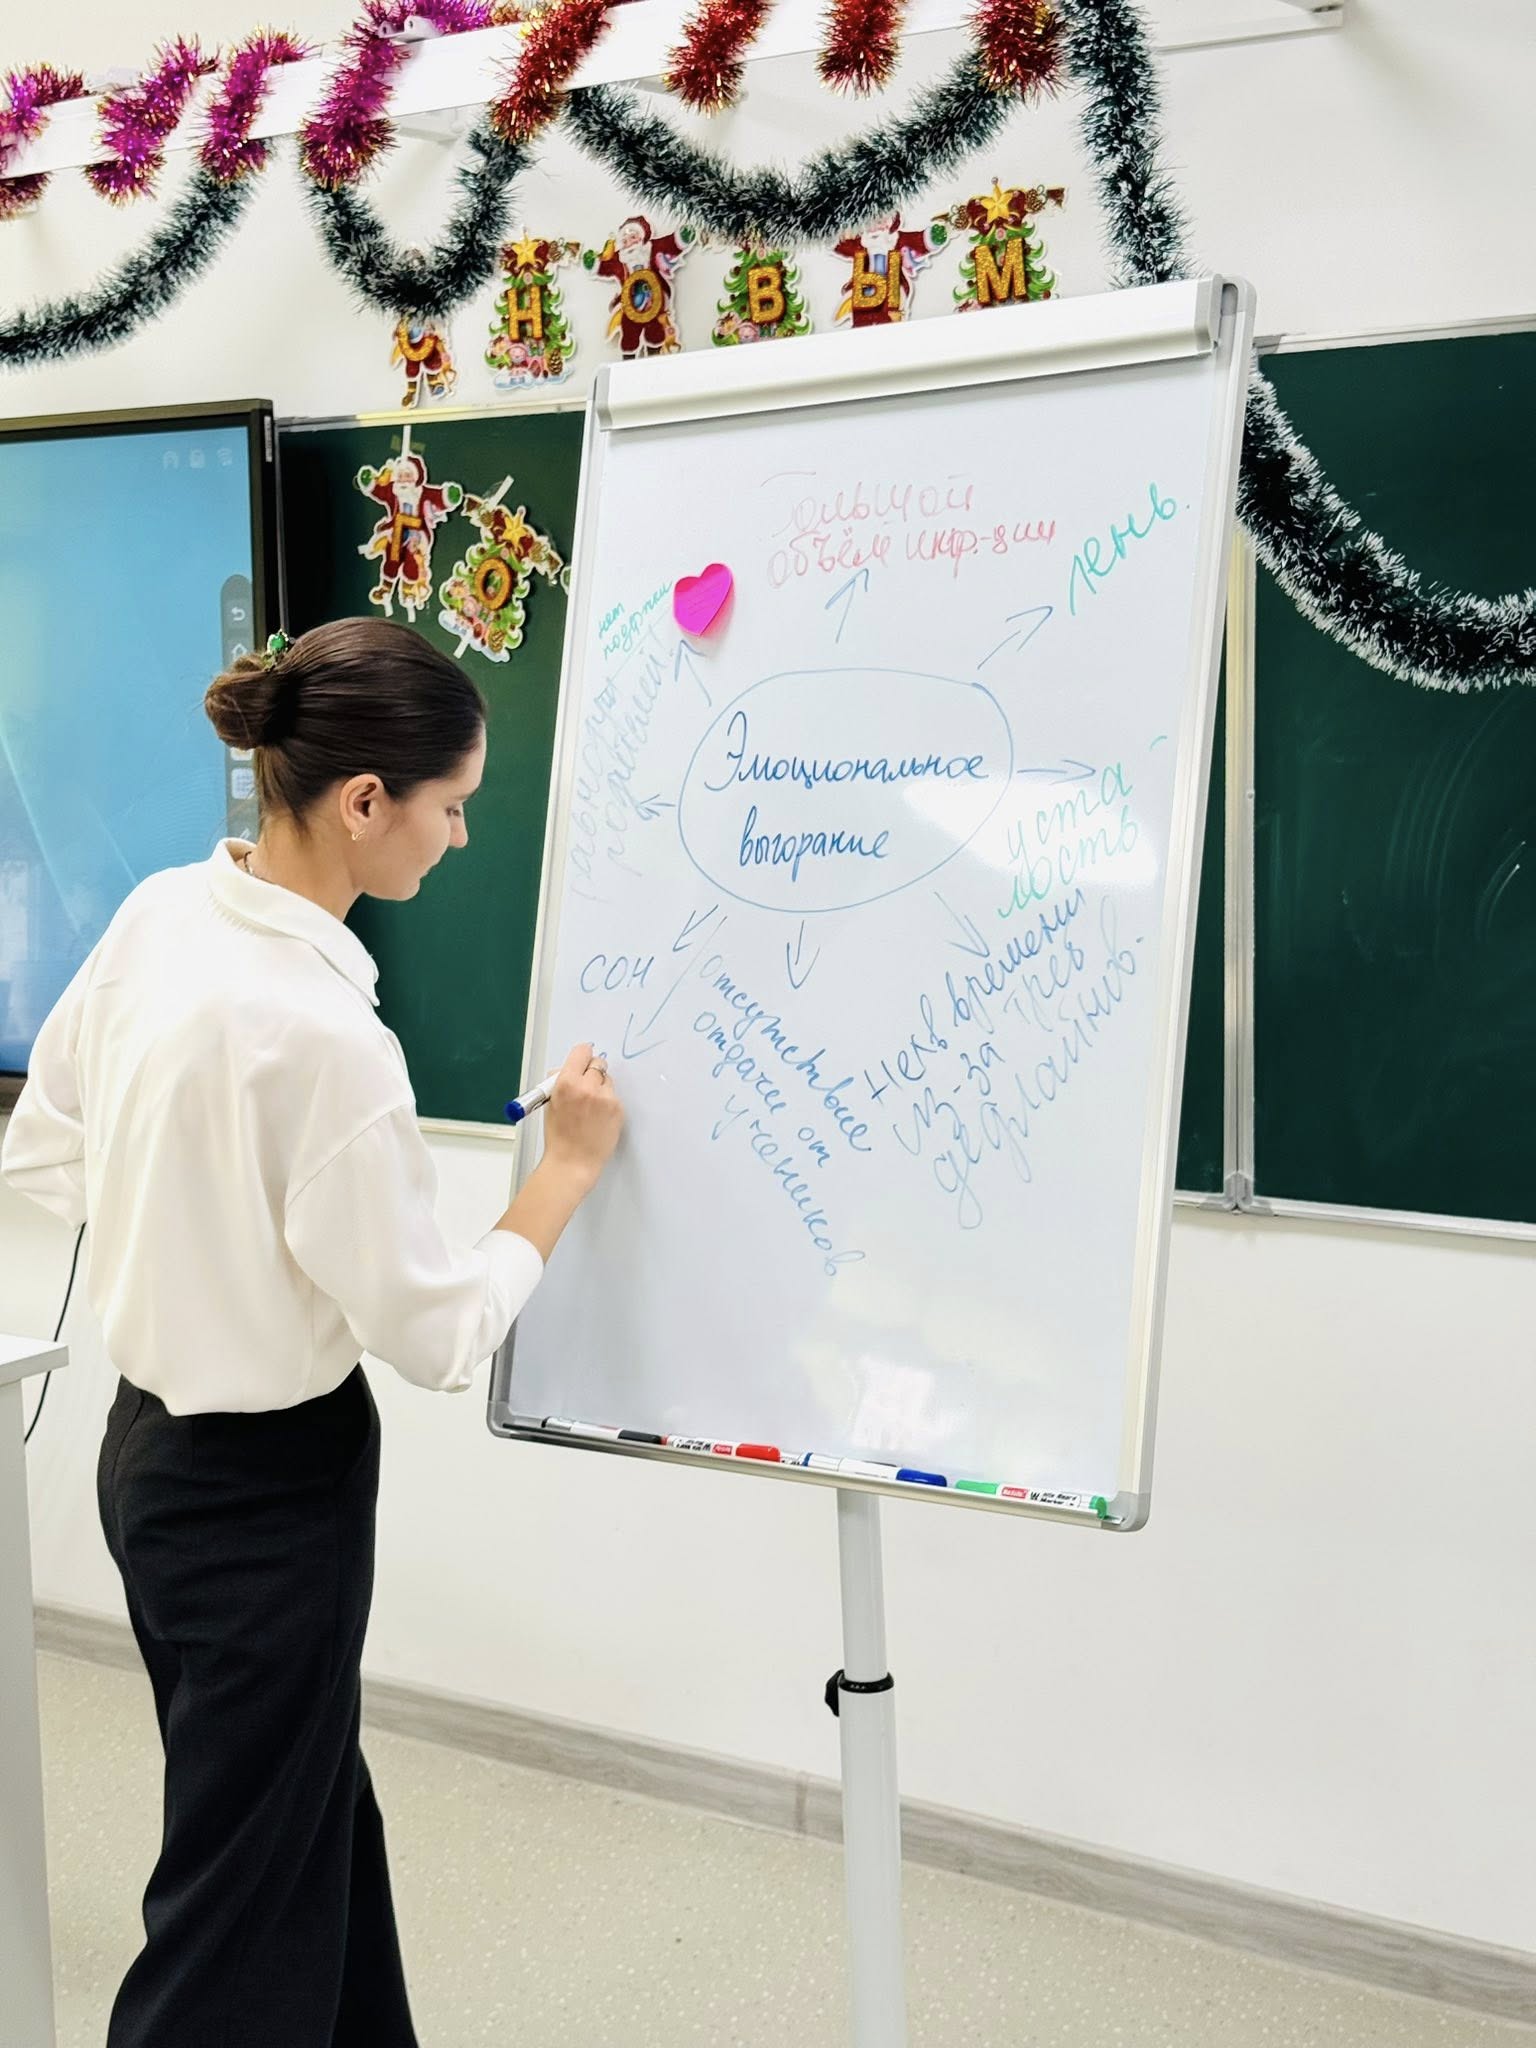 С НОВЫМ
ГО
Большой
объём инф-ции
лень.
нет
поддержки
родителей.
Эмоциональное
выгорание
уста-
лость
СОН
отсутствие
отдачи от
учеников
Нехв. времени
из-за трёх
дедлайнов.